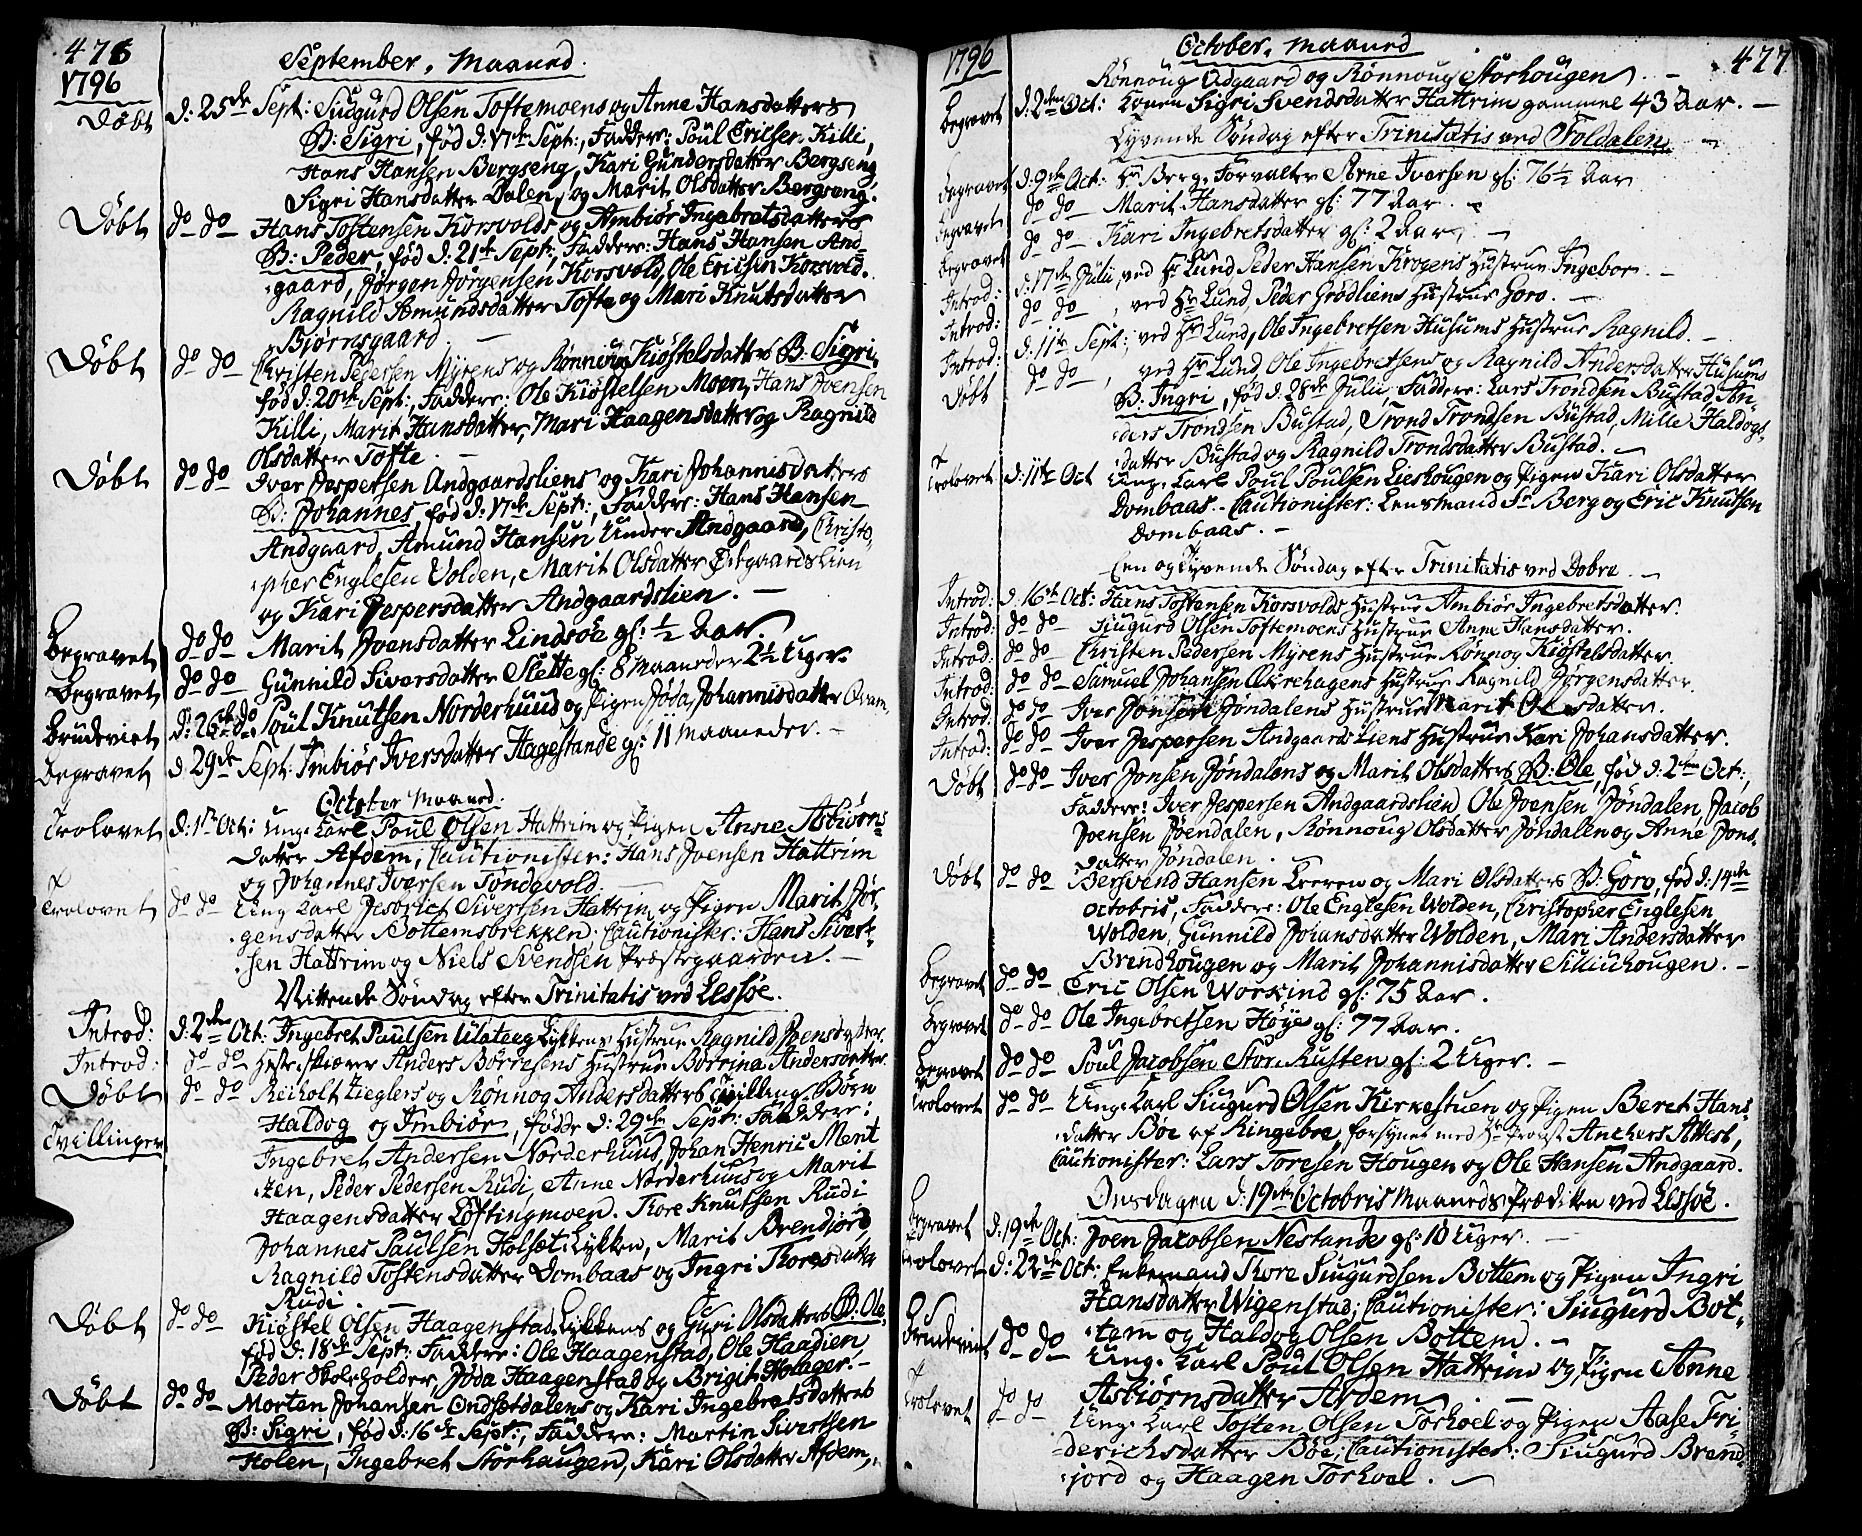 476
1796
September. Maaned.
Døbt d: 25de Sept: Siugurd Olsen Toftemoens og Anne Hansdatters
B: Sigri, fød d: 17de Sept:, Faddere: Poul Ericser Killi,
Hans Hansen Bergseng, Kari Gundersdatter Bergseng,
Sigri Hansdatter Dalen, og Marit Olsdatter Bergseng.
Døbt do do Hans Tostensen Korsvolds og Ambiør Ingebretsdatters
B: Peder, fød d: 21de Sept:, Faddere: Hans Hansen And
gaard, Jørgen Jørgensen Korsvold, Ole Ericsen Korsvold.
Ragnild Amundsdatter Tofte og Mari Knutsdatter
Bjørnsgaard. —
Døbt do do Christen Pedersen Myrens og Rønnoug Kiøstelsdatters B: Sigri,
fød d: 20de Sept:, Faddere: Ole Kiøstelsen Moen, Hans Joensen
Killi, Marit Hansdatter, Mari Haagensdatter og Ragnild
Olsdatter Tofte. —
Døbt do do Iver Jespersen Andgaardsliens og Kari Johannisdatters
B: Johannes, fød d: 17de Sept:, Faddere: Hans Hansen
Andgaard, Amund Hansen Under Andgaard, Christo-
pher Englesen Volden, Marit Olsdatter Andgaardslien
og Kari Jespersdatter Andgaardslien. —
Begravet do do Marit Joensdatter Lindsøe gl: ½ Aar.
Begravet do do Gunnild Siversdatter Slette gl: 8 Maaneder 2½ Uger.
Brudeviet d: 26de do Poul Knutsen Norderhuus og Pigen Jøda Johannisdatter
Begravet d: 29de Sept: Imbiør Iversdatter Hagestande gl: 11 Maaneder. —
October Maaned.
Trolovet d: 1te Oct: Ung. Karl Poul Olsen Hattrim og Pigen Anne Asbiørns-
datter Afdem, Cautionister: Hans Joensen Hattrim
og Johannes Iversen Tøndevold. —
Trolovet do do Ung Karl Jesprict Sivertsen Hattrim og Pigen Marit Jør-
gensdatter Bottemsbrekken; Cautionister: Hans Sivert-
sen Hattrim og Niels Svendsen Præstegaarden. —
Nittende Søndag efter Trinitatis ved Lessøe.
Introd: d: 2den Oct: Ingebret Paulsen Ulateeg Lykkens Hustrue Ragnild Joensdatter
Introd: do do Anders Børresens Hustrue Borrina Andersdatter
Døbt do do Reiholt Zieglers og Rønnog Andersdatters Tvilling-Børn
Haldog og Imbiør, fødde d: 29de Sept: Faddere:
Tvillinger Ingebret Andersen Norderhuus, Johan Henric Ment
zen, Peder Pedersen Rudi, Anne Norderhuus og Marit
Haagensdatter Løftingmoen. Tore Knutsen Rudi
Johannes Paulsen Holsæt Lykken, Marit Brendjord,
Ragnild Tostensdatter Dombaas og Ingri Thoresdatter
Rudi. —
Døbt do do Kiøstel Olsen Haagenstad Lykkens og Guri Olsdatters B: Ole,
fød d: 18de Sept: Faddere: Ole Haagenstad, Ole Haadien,
Peder Skoleholder, Jøda Haagenstad og Brigit Holager. —
Døbt do do Morten Johansen Ondsetdalens og Kari Ingebretsdatters
B: Sigri, fød d: 16de Sept:, Faddere: Martin Sivertsen
Holen, Ingebret Storhaugen, Kari Olsdatter Afdem,
1796 October. Maaned 477
Rønnoug Odgaard og Rønnoug Storhougen. —
Begravet d: 2den Oct: Konen Sigri Svendsdatter Hattrim gammel 43 Aar. —
Tyvende Søndag efter Trinitatis ved Foldalen. —
Begravet d: 9de Oct: Hr Berg. Forvalter Arne Iversen gl: 76½ Aar
Begravet do do Marit Hansdatter gl: 77 Aar. —
Begravet do do Kari Ingebretsdatter gl: 2 Aar. —
Introd: d: 17de Julii, ved Hr Lund, Peder Hansen Krogens Hustrue Ingebor. —
Introd: do do, ved Hr Lund, Peder Grødliens Hustrue Goro. —
Introd: d: 11te Sept:, ved Hr Lund, Ole Ingebretsen Husums Hustrue Ragnild. —
Døbt do do, ved Hr Lund, Ole Ingebretsens og Ragnild Andersdatter Husums
B: Ingri, fød d: 28de Julii Faddere: Lars Trondsen Bustad, An-
ders Trondsen Bustad, Trond Trondsen Bustad, Mille Haldogs-
datter Bustad og Ragnild Trondsdatter Bustad. —
Trolovet d: 11te Oct Ung. Karl Poul Poulsen Lieshougen og Pigen Kari Olsdatter
Dombaas. Cautionister: Lensmand Sr Berg og Eric Knutsen
Dombaas. —
Een og Tyvende Søndag efter Trinitatis ved Dobre. —
Introd: d: 16de Oct: Hans Tostensen Korsvolds Hustrue Ambiør Ingebretsdatter.
Introd: do do Siugurd Olsen Toftemoens Hustrue Anne Hansdatter.
Introd: do do Christen Pedersen Myrens Hustrue Rønnog Kiøstelsdatter
Introd: do do Samuel Johansen Hustrue Ragnild Jørgensdatter.
Introd: do do Iver Jonsen Jøndalens Hustrue Marit Olsdatter.
Introd: do do Iver Jespersen Andgaards Liens Hustrue Kari Johansdatter.
Døbt do do Iver Jonsen Jøndalens og Marit Olsdatters B: Ole, fød d: 2den Oct:,
Faddere: Iver Jespersen Andgaardslien, Ole Joensen Jøndalen, Jacob
Joensen Jøendalen, Rønnoug Olsdatter Jøndalen og Anne Jons-
datter Jøndalen.
Døbt do do Bersvend Hansen og Mari Olsdatters B: Goro, fød d: 14de
Octobris, Faddere: Ole Englesen Wolden, Christopher Englesen
Wolden, Gunnild Johansdatter Wolden, Mari Andersdatter
Brendhougen og Marit Johannisdatter Silliuhougen. —
Begravet do do Eric Olsen Workind gl: 75 Aar.
Begravet do do Ole Ingebretsen Høye gl: 77 Aar.
Begravet do do Poul Jacobsen Stor. Rusten gl: 2 Uger. —
Trolovet do do Ung. Karl Siugurd Olsen Kirkestuen og Pigen Beret Hans-
datter Böe af Ringebve, forsynet med Hr Provst Anchers Attest,
Cautionister: Lars Toresen Hougen og Ole Hansen Andgaard.
Onsdagen d: 19de Octobris Maaneds Prædiken ved Lessöe.
Begravet d: 19de Oct: Joen Jacobsen Nestande gl: 10 Uger. —
Trolovet d: 22de Oct: Enkemand Thore Siugurdsen Bottem og Pigen Ingri
Hansdatter Wigenstad; Cautionister: Siugurd Bot-
tem og Haldog Olsen Bottem. —
Brudeviet do do Ung. Karl Poul Olsen Hattrim og Pigen Anne
Asbiørnsdatter Avdem. —
Trolovet do do Ung. Karl Tosten Olsen Torhoel og Pigen Aase Fri-
derichsdatter Böe; Cautionister: Siugurd Brend-
jord og Haagen Torhoel. —